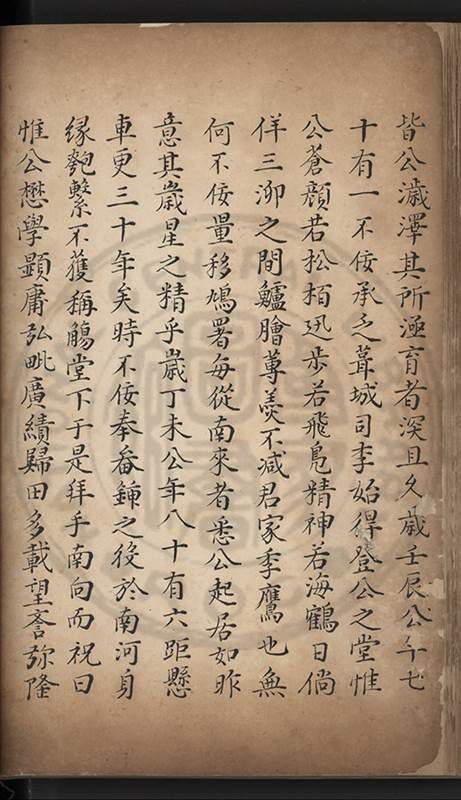 皆公濊澤其所涵育者深且久歲壬辰公年七
十有一不佞承乏葺城司李始得登公之堂惟
公蒼顏若松栢迅步若飛鳧精神若海鶴日倘
佯三泖之間鱸膾蓴羹不減君家季鷹也無
何不佞量移鳩署每從南來者悉公起居如昨
意其歲星之精乎歲丁未公年八十有六距懸
車更三十年矣時不佞奉畚鍤之役於南河身
緣匏繫不獲稱觴堂下于是拜手南向而祝曰
惟公懋學顯庸弘毗廣績歸田多載望耆弥隆